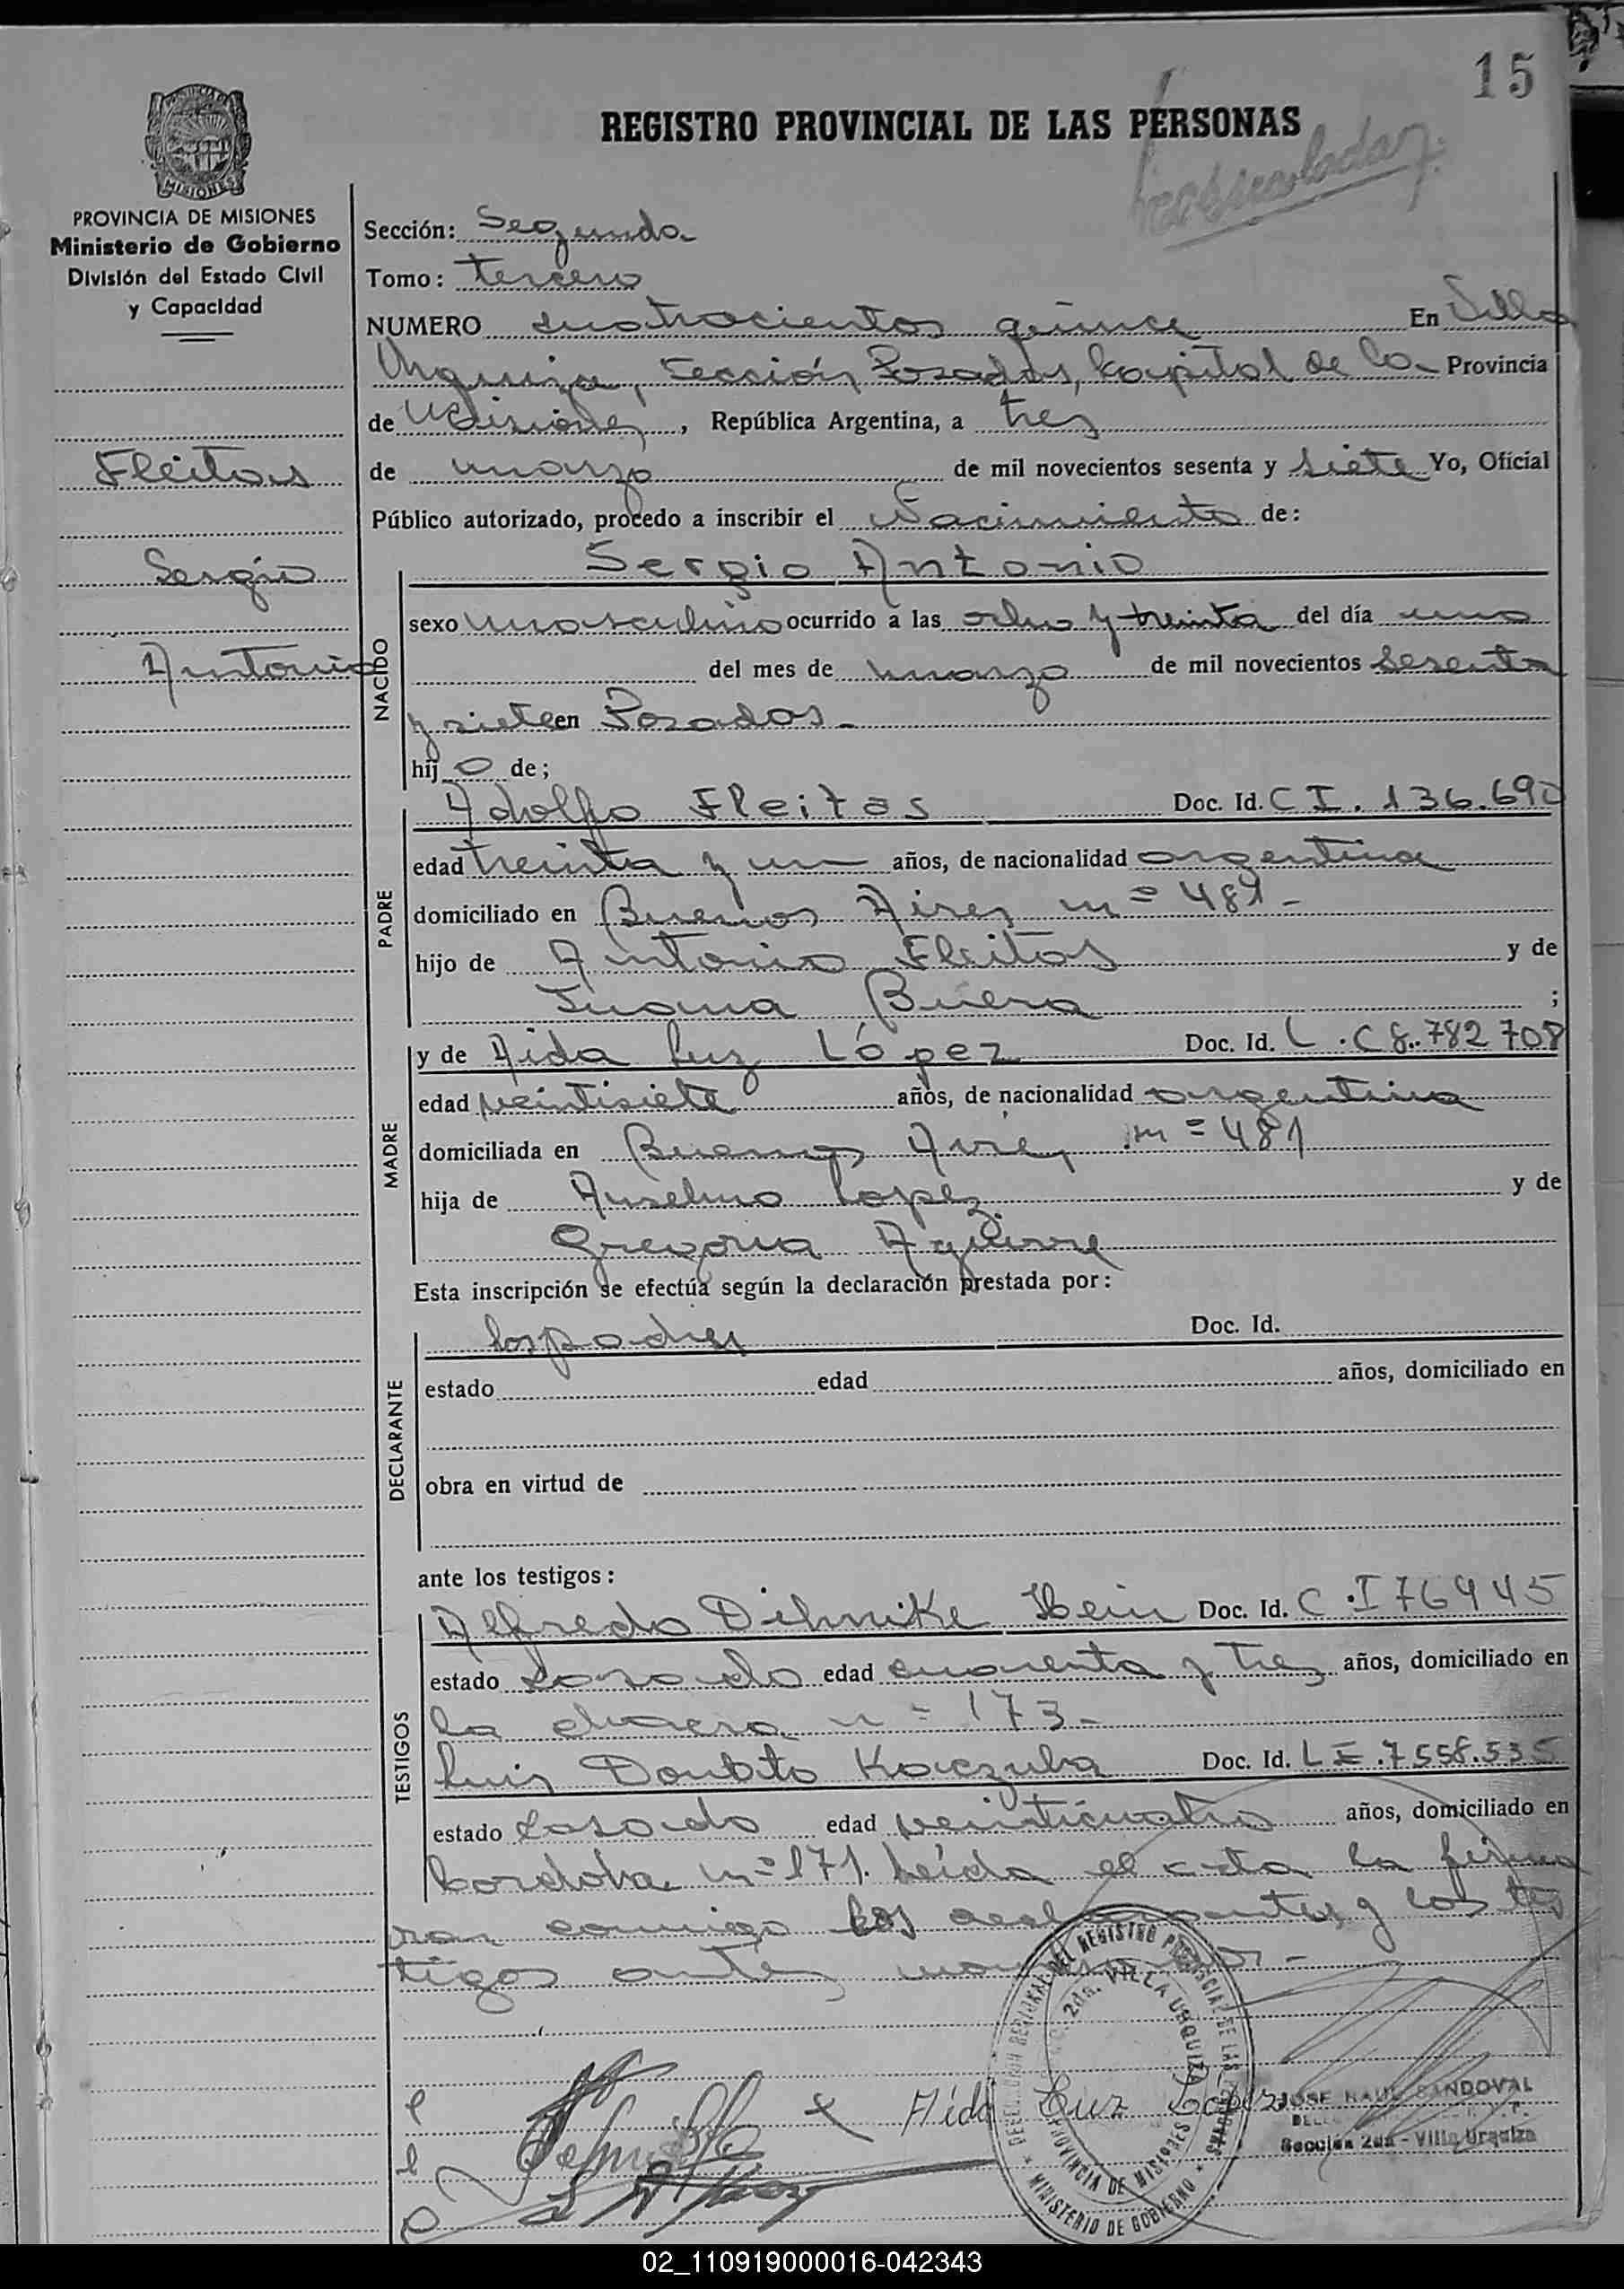 15
REGISTRO PROVINCIAL DE LAS PERSONAS
MISIONES
PROVINCIA DE MISIONES
Ministerio de Gobierno
División del Estado Civil
y Capacidad
Fleitas
Sergio
Antonio
Sección: Segunda
Tomo: tercero
NUMERO cuatrocientos quince En Villa
Urquiza, Sección Posadas, Capital de la Provincia
de Misiones, República Argentina, a tres
de marzo de mil novecientos sesenta y siete Yo, Oficial
Público autorizado, procedo a inscribir el Nacimiento de:
Sergio Antonio
NACIDO
sexo masculino ocurrido a las ocho y treinta del día uno
del mes de marzo de mil novecientos sesenta
y siete en Posadas -
hijo de;
PADRE
Adolfo Fleitas Doc. Id. C I. 136.690
edad treinta y un años, de nacionalidad argentina
domiciliado en Buenos Aires n= 481-
hijo de Antonio Fleitas y de
Juana Buera ;
MADRE
y de Aida Luz López Doc. Id. L.C 8.782 708
edad veintisiete años, de nacionalidad argentina
domiciliada en Buenos Aires n=481
hija de Anselmo Lopez y de
Gregoria Aguirre
Esta inscripción se efectúa según la declaración prestada por:
DECLARANTE
los padres Doc. Id.
estado edad años, domiciliado en
obra en virtud de
ante los testigos:
TESTIGOS
Alfredo Dihnike Hein Doc. Id. C.I 76945
estado casado edad cuarenta y tres años, domiciliado en
la chacra n= 173-
Luis Kaczuba Doc. Id. L E.7558.535
estado casado edad veinticuatro años, domiciliado en
Cordoba n=171. Leída el acta la firma
ran conmigo los y los tes
tigos antes
Aida Luz López
DELEGACION REGIONAL DEL REGISTRO PROVINCIAL DE LAS PERSONAS
2da. VILLA URQUIZA
PROVINCIA DE MISIONES
MINISTERIO DE GOBIERNO
JOSE RAUL SANDOVAL
Sección 2da - Villa Urquiza
02_110919000016-042343